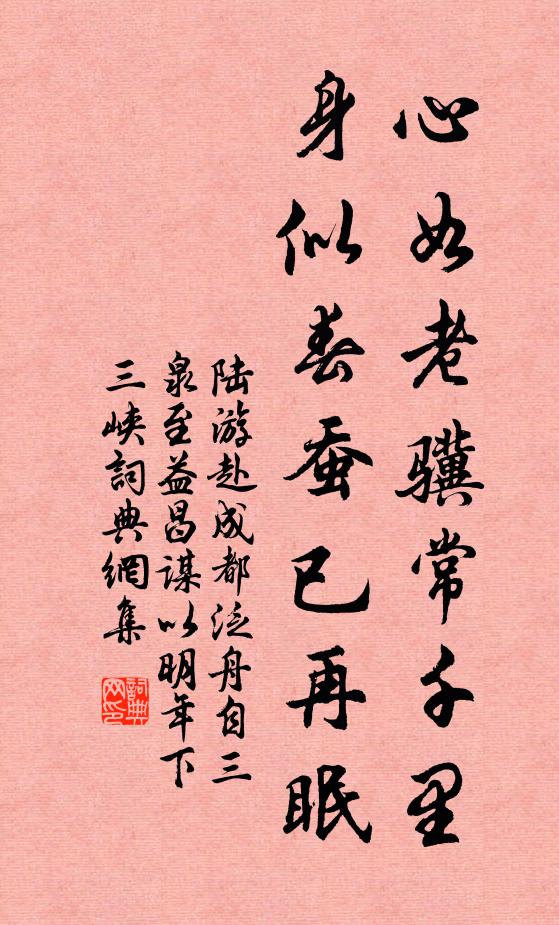 心如老骥常千里
身似春蚕已再眠
陆游赴成都泛舟自三
泉至益昌谋以明年下
三峡詞典網集
詞典网印